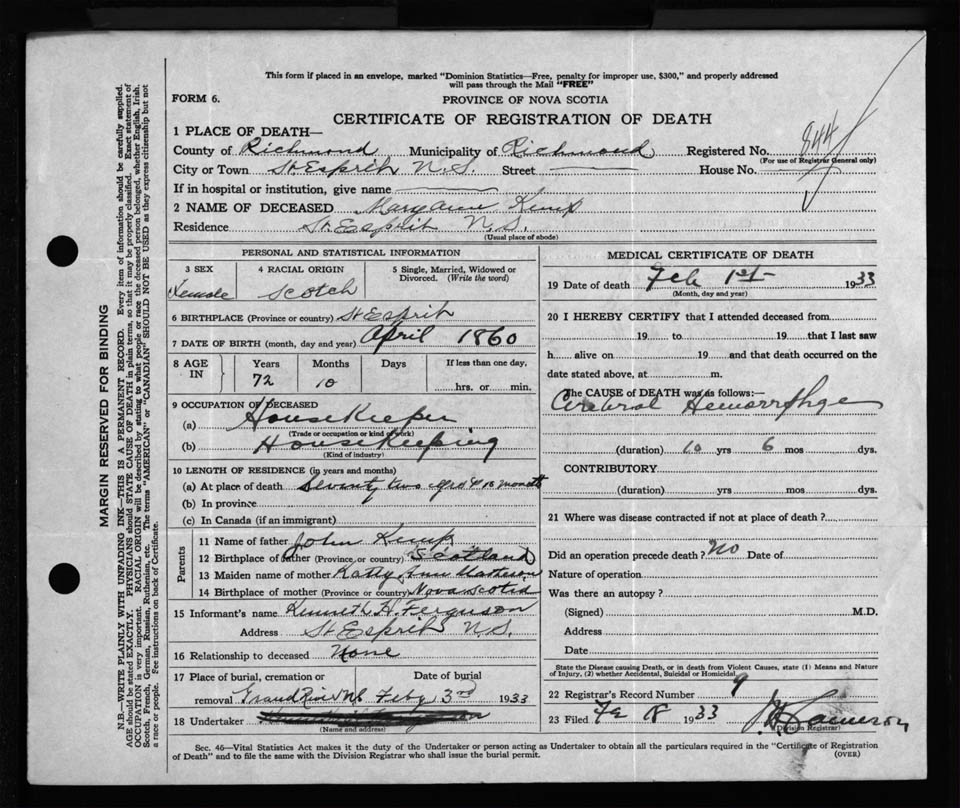 This form if placed in an envelope, marked "Dominion Statistics—Free, penalty for improper use, $300," and properly addressed
will pass through the Mail "FREE"
FORM 6.
PROVINCE OF NOVA SCOTIA
CERTIFICATE OF REGISTRATION OF DEATH
1 PLACE OF DEATH—
County of Richmond Municipality of Richmond Registered No. 844
(For use of Registrar General only)
City or Town St Esprit N.S. Street House No.
If in hospital or institution, give name
2 NAME OF DECEASED Mary Anne Kemp
Residence St Esprit N.S.
(Usual place of abode)
PERSONAL AND STATISTICAL INFORMATION
3 SEX 4 RACIAL ORIGIN 5 Single, Married, Widowed or
Divorced. (Write the word)
Female Scotch
6 BIRTHPLACE (Province or country) St Esprit
7 DATE OF BIRTH (month, day and year) April 1860
8 AGE IN Years Months Days If less than one day,
72 10 hrs. or min.
9 OCCUPATION OF DECEASED
(a) House Keeper
(Trade or occupation or kind of work)
(b) House Keeping
(Kind of industry)
10 LENGTH OF RESIDENCE (in years and months)
(a) At place of death Seventy two yrs & 10 months
(b) In province
(c) In Canada (if an immigrant)
Parents
11 Name of father John Kemp
12 Birthplace of father (Province or country) Scotland
13 Maiden name of mother Katty Ann Matheson
14 Birthplace of mother (Province or country) Nova Scotia
15 Informant's name Kenneth H. Ferguson
Address St Esprit N.S.
16 Relationship to deceased None
17 Place of burial, cremation or Date of burial
removal Grand River NS Feby 3rd 1933
18 Undertaker
(Name and address)
MEDICAL CERTIFICATE OF DEATH
19 Date of death Feb 1st 1933
(Month, day and year)
20 I HEREBY CERTIFY that I attended deceased from
19 to 19 that I last saw
h alive on 19 and that death occurred on the
date stated above, at m.
The CAUSE OF DEATH was as follows:—
Cerebral Hemorrphge
(duration) 10 yrs 6 mos dys.
CONTRIBUTORY
(duration) yrs. mos. dys.
21 Where was disease contracted if not at place of death?
Did an operation precede death? No Date of
Nature of operation
Was there an autopsy?
(Signed) M.D.
Address
Date
State the Disease causing Death, or in death from Violent Causes, state (1) Means and Nature
of Injury, (2) whether Accidental, Suicidal or Homicidal.
22 Registrar's Record Number 9
23 Filed 1933 Cameron
(Division Registrar)
Sec. 46—Vital Statistics Act makes it the duty of the Undertaker or person acting as Undertaker to obtain all the particulars required in the "Certificate of Registration
of Death" and to file the same with the Division Registrar who shall issue the burial permit. (OVER)
MARGIN RESERVED FOR BINDING
N.B.—WRITE PLAINLY WITH UNFADING INK—THIS IS A PERMANENT RECORD. Every item of information should be carefully supplied.
AGE should be stated EXACTLY. PHYSICIANS should STATE CAUSE OF DEATH in plain terms, so that it may be properly classified. Exact statement of
OCCUPATION is very important. RACIAL ORIGIN will be described by stating to what people or race the deceased person belonged, whether English, Irish,
Scotch, French, German, Russian, Ruthenian, etc. The terms "AMERICAN" or "CANADIAN" SHOULD NOT BE USED as they express citizenship but not
a race or people. Fee instructions on back of Certificate.